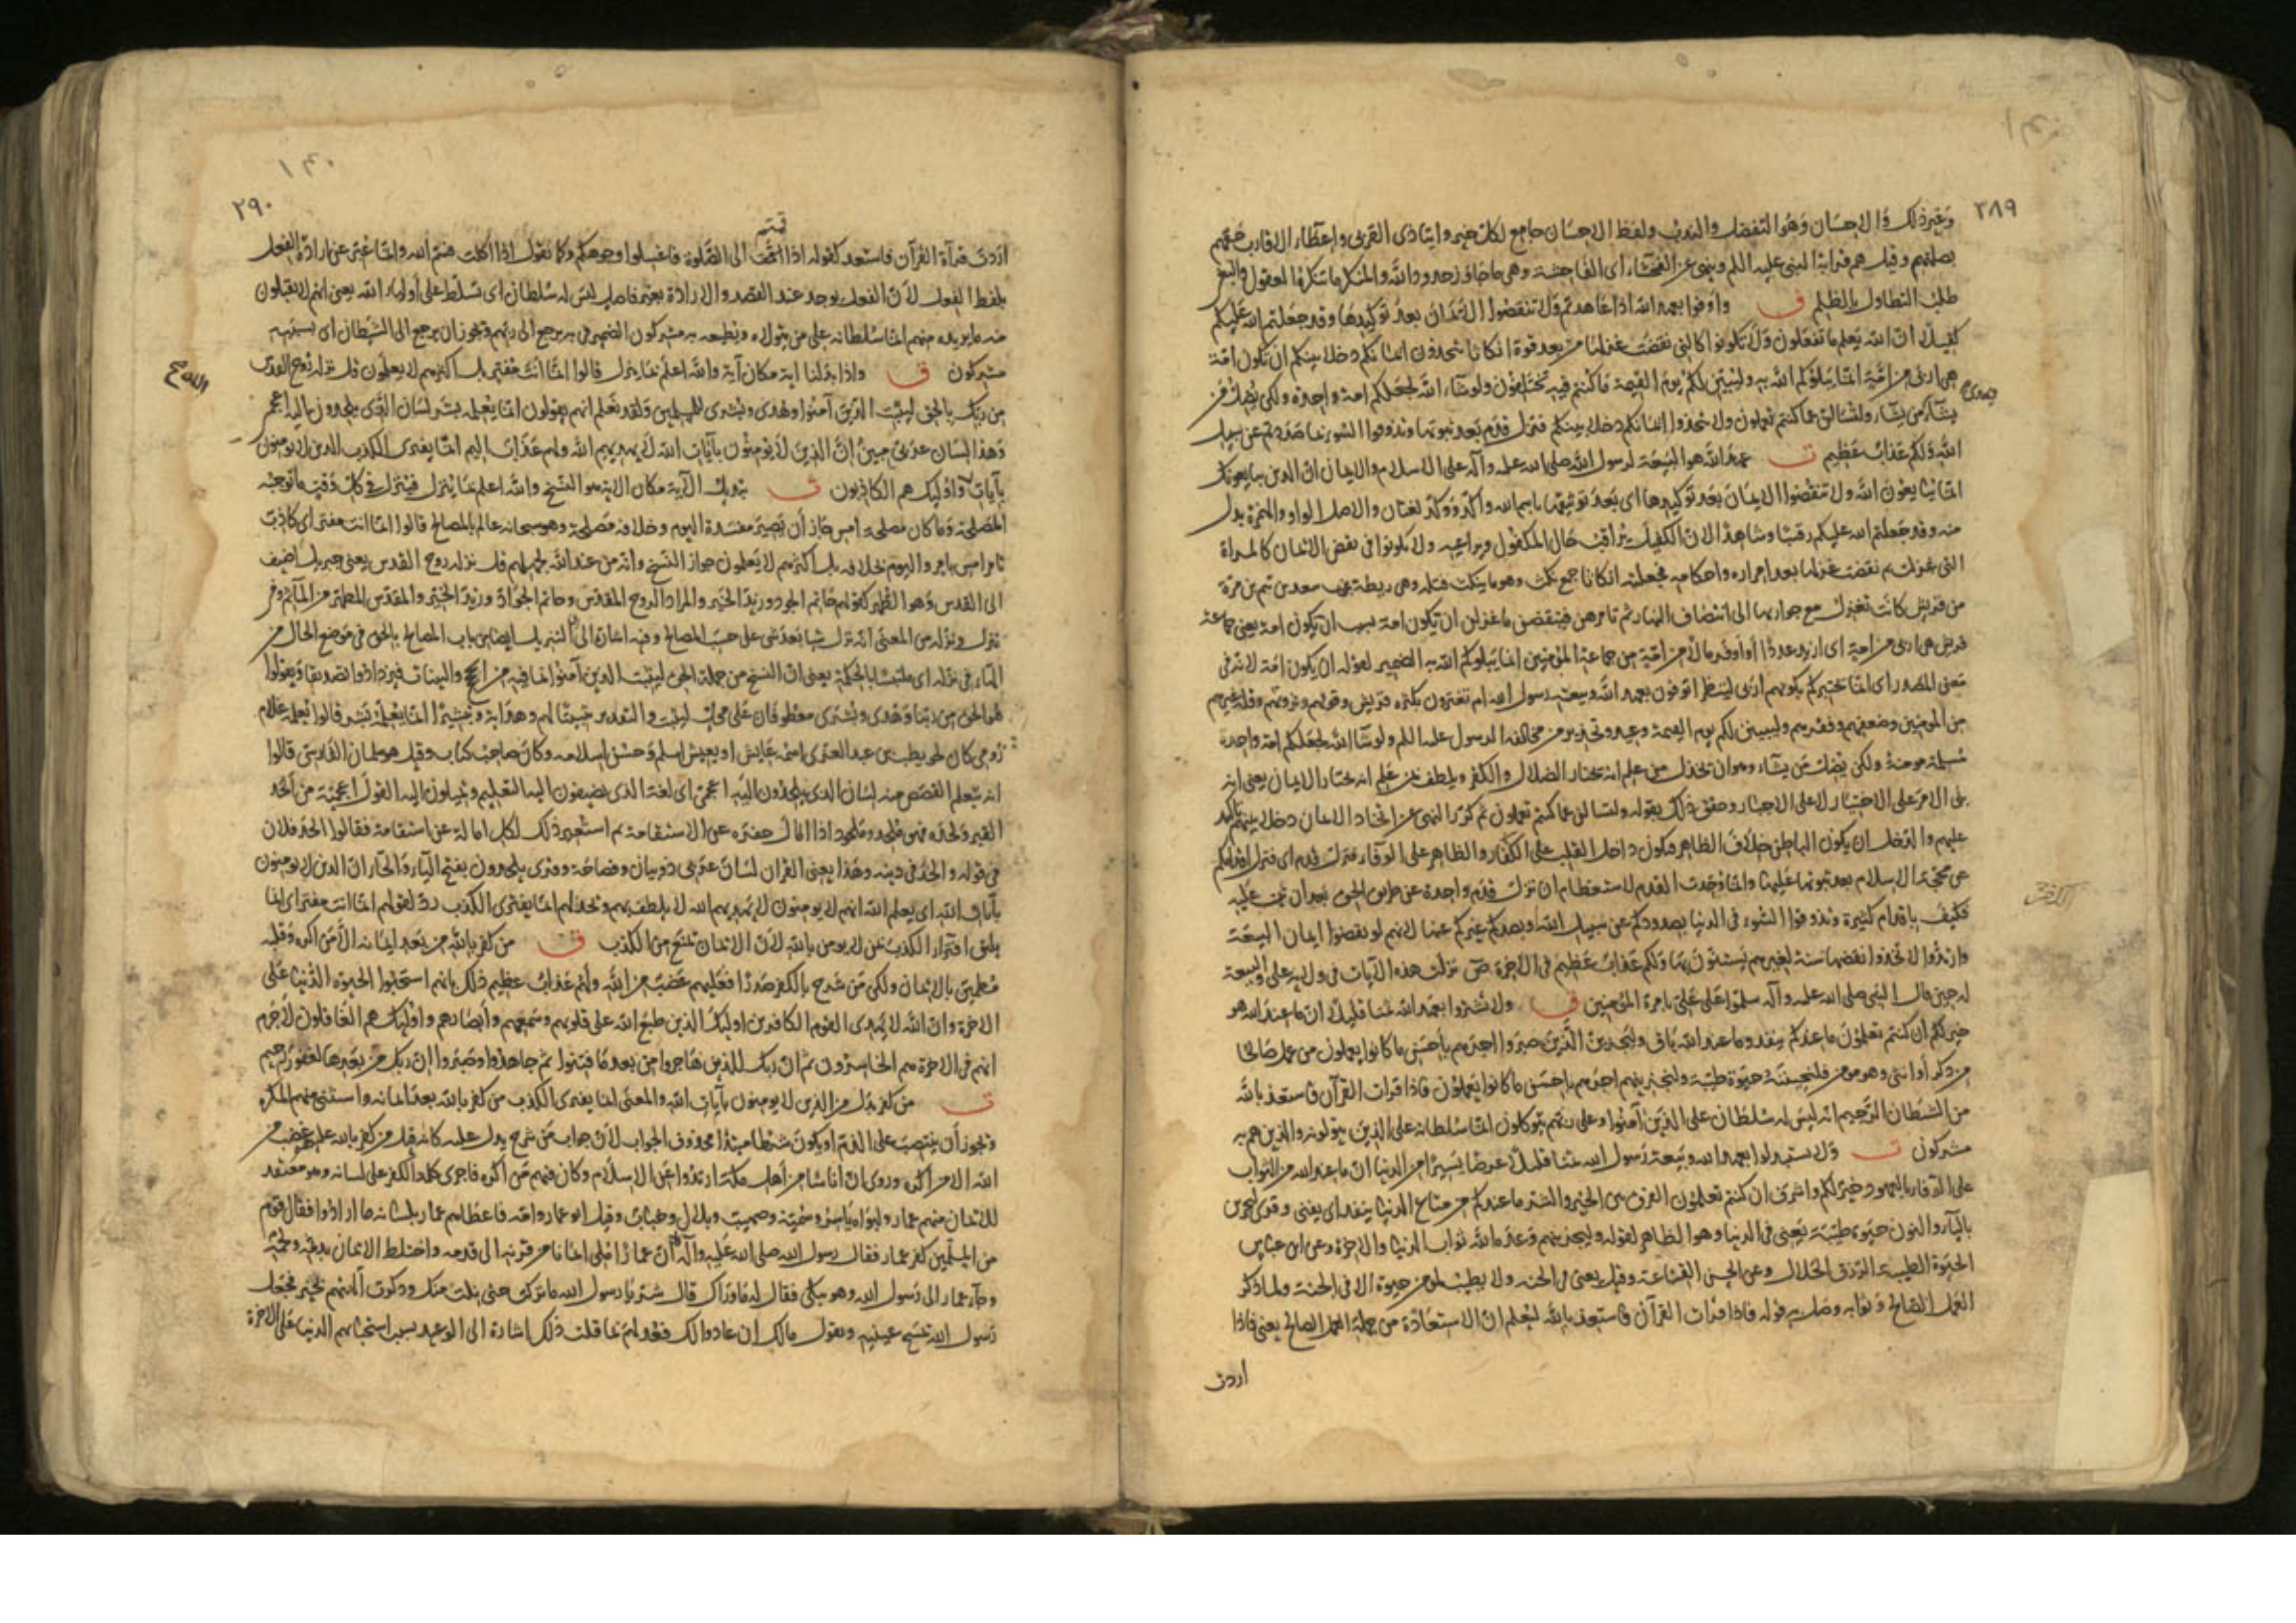 ٢٨٩
وغير ذلك والاحسان وهو التفضل والندب ولفظ الاحسان جامع لكل خير وايتاء ذى القربى واعطاء الاقارب حقهم
بصلتهم وقيل هم قرابة النبى عليه اللم وينهى عن الفحشاء اى الفاحشة وهى ما جاوز حدود الله والمنكر ما تنكره العقول والبغى
طلب التطاول بالظلم ف واوفوا بعهد الله اذا عاهدتم ولا تنقضوا الايمان بعد توكيدها وقد جعلتم الله عليكم
كفيلا ان الله يعلم ما تفعلون ولا تكونوا كالتى نقضت غزلها من بعد قوة انكاثا تتخذون ايمانكم دخلا بينكم ان تكون امة
هى اربى من امة انما يبلوكم الله به وليبينن لكم يوم القيمة ما كنتم فيه تختلفون ولو شاء الله لجعلكم امة واحدة ولكن يضل من
يشاء ويهدى من يشاء ولتسالن عما كنتم تعملون ولا تتخذوا ايمانكم دخلا بينكم فتزل قدم بعد ثبوتها وتذوقوا السوء بما صددتم عن سبيل
الله ولكم عذاب عظيم ت عهد الله هو البيعة لرسول الله صلى الله عليه وآله على الاسلام والايمان ان الذين يبايعونك
انما يبايعون الله ولا تنقضوا الايمان بعد توكيدها اى بعد توثيقها باسم الله واكد ووكد لغتان والاصل الواو والهمزة بدل
منه وقد جعلتم الله عليكم رقيبا وشاهدا لان الكفيل يراقب حال المكفول ويراعيه ولا تكونوا فى نقض الايمان كالمراة
التى غزلت ثم نقضت غزلها بعد امراره واحكامه فجعلته انكاثا جمع نكث وهو ما ينكث فتله وهى ريطة بنت سعد بن تيم بن مرة
من قريش كانت تغزل مع جواريها الى انتصاف النهار ثم تامرهن فينقضن ما غزلن ان تكون امة بسبب ان تكون امة يعنى جماعة
قريش هى اربى من امة اى ازيد عددا او اوفر مالا من امة من جماعة المؤمنين انما يبلوكم الله به الضمير لقوله ان تكون امة لانه فى
معنى المصدر اى انما يختبركم بكونهم اربى لينظر اتوفون بعهد الله وبيعة رسول الله ام تغترون بكثرة قريش وقوتهم وثروتهم وقلة غيرهم
من المؤمنين وضعفهم وفقرهم وليبينن لكم يوم القيمة وعيد وتحذير من مخالفة الرسول عليه اللم ولو شاء الله لجعلكم امة واحدة
مسلمة مومنة ولكن يضل من يشاء وهو ان يخذل من علم انه يختار الضلال والكفر ويلطف بمن علم انه يختار الايمان يعنى انه
بنى الامر على الاختيار لا على الاجبار وحقق ذلك بقوله ولتسالن عما كنتم تعملون ثم كرر النهى عن اتخاذ الايمان دخلا بينهم تاكيدا
عليهم والدخل ان يكون الباطن خلاف الظاهر فيكون داخل القلب على الكفر والظاهر على الوفاء فتزل قدم اى فتزل اقدامكم
عن محجة الاسلام بعد ثبوتها عليها وانما وحدت القدم لاستعظام ان تزل قدم واحدة عن طريق الحق بعد ان ثبتت عليه
فكيف باقدام كثيرة وتذوقوا السوء فى الدنيا بصدودكم عن سبيل الله وبصدكم غيركم عنها لانهم لو نقضوا ايمان البيعة
وارتدوا لاتخذوا نقضها سنة لغيرهم يستنون بها ولكم عذاب عظيم فى الآخرة ص نزلت هذه الآيات فى ولاية على والبيعة
له حين قال النبى صلى الله عليه وآله سلموا على على بامرة المؤمنين ف ولا تشتروا بعهد الله ثمنا قليلا ان ما عند الله هو
خير لكم ان كنتم تعلمون ما عندكم ينفد وما عند الله باق ولنجزين الذين صبروا اجرهم باحسن ما كانوا يعملون من عمل صالحا
من ذكر او انثى وهو مومن فلنحيينه حيوة طيبة ولنجزينهم اجرهم باحسن ما كانوا يعملون فاذا قرات القرآن فاستعذ بالله
من الشيطان الرجيم انه ليس له سلطان على الذين آمنوا وعلى ربهم يتوكلون انما سلطانه على الذين يتولونه والذين هم به
مشركون ت ولا تستبدلوا بعهد الله وبيعة رسول الله ثمنا قليلا عرضا يسيرا من الدنيا ان ما عند الله من الثواب
على الوفاء بالعهود خير لكم واشرف ان كنتم تعلمون الفرق بين الخير والشر ما عندكم من متاع الدنيا ينفد اى يفنى وقرئ لنجزين
بالياء والنون حيوة طيبة يعنى فى الدنيا وهو الظاهر لقوله ولنجزينهم وعده الله ثواب الدنيا والاخرة وعن ابن عباس
الحيوة الطيبة الرزق الحلال وعن الحسن القناعة وقيل يعنى فى الجنة ولا يطيب لمومن حيوة الا فى الجنة ولما ذكر
العمل الصالح وثوابه وصل به قوله فاذا قرات القرآن فاستعذ بالله ليعلم ان الاستعاذة من جملة العمل الصالح يعنى فاذا
اردت
٢٩٠
اردت قرآءة القرآن فاستعذ كقوله اذا قمتم الى الصلوة فاغسلوا وجوهكم وكما تقول اذا اكلت فسم الله وانما عبر عن ارادة الفعل
بلفظ الفعل لان الفعل يوجد عند القصد والارادة بغير فاصل ليس له سلطان اى تسلط على اولياء الله يعنى انهم لا يقبلون
منه ما يريده منهم انما سلطانه على من يتولاه ويطيعه به مشركون الضمير فى به يرجع الى ربهم ويجوز ان يرجع الى الشيطان اى بسببه
مشركون ف واذا بدلنا اية مكان آية والله اعلم بما ينزل قالوا انما انت مفتر بل اكثرهم لا يعلمون قل نزله روح القدس
من ربك بالحق ليثبت الذين آمنوا وهدى وبشرى للمسلمين ولقد نعلم انهم يقولون انما يعلمه بشر لسان الذى يلحدون اليه اعجمى
وهذا لسان عربى مبين ان الذين لا يؤمنون بآيات الله لا يهديهم الله ولهم عذاب اليم انما يفترى الكذب الذين لا يومنون
بآيات الله واولئك هم الكاذبون ت تبديل الآية مكان الاية هو النسخ والله اعلم بما ينزل فينزل فى كل وقت ما توجبه
المصلحة وما كان مصلحة امس جاز ان يصير مفسدة اليوم وخلافه مصلحة وهو سبحانه عالم بالمصالح قالوا انما انت مفتر اى كاذب
تامر امس بامر واليوم بخلافه بل اكثرهم لا يعلمون جواز النسخ وانه من عند الله لجهلهم قل نزله روح القدس يعنى جبريل اضيف
الى القدس وهو الطهر كقولهم حاتم الجود وزيد الخير والمراد الروح المقدس وحاتم الجواد وزيد الخير والمقدس المطهر من المآثم وفى
ينزل ونزله من المعنى انه نزل شيا بعد شئ على حسب المصالح وفيه اشارة الى ان التبديل ايضا من باب المصالح بالحق فى موضع الحال من
الهاء فى نزله اى ملتبسا بالحكمة يعنى ان النسخ من جملة الحق ليثبت الذين آمنوا بما فيه من الحجج والبينات فيزدادوا تصديقا ويقولوا
هو الحق من ربنا وهدى وبشرى معطوفان على محل ليثبت والتقدير تثبيتا لهم وهداية وتبشيرا انما يعلمه بشر قالوا تعلمه غلام
رومى كان لحويطب بن عبد العزى اسمه عايش او يعيش اسلم وحسن اسلامه وكان صاحب كتاب وقيل هو سلمان الفارسى قالوا
انه يتعلم القصص منه لسان الذى يلحدون اليه اعجمى اى لغة الذى يضيفون اليه التعليم ويميلون اليه القول اعجمية من الحد
القبر ولحده فهو ملحد وملحود اذا امال حفره عن الاستقامة ثم استعير ذلك لكل امالة عن استقامة فقالوا الحد فلان
فى قوله والحد فى دينه وهذا يعنى القرآن لسان عربى ذو بيان وفصاحة وقرئ يلحدون بفتح الياء والحاء ان الذين لا يومنون
بآيات الله اى يعلم الله انهم لا يومنون لا يهديهم الله لا يلطف بهم ويخذلهم انما يفترى الكذب رد لقولهم انما انت مفتر اى انما
يليق افتراء الكذب بمن لا يومن بالله لان الايمان يمنع من الكذب ف من كفر بالله من بعد ايمانه الا من اكره وقلبه
مطمئن بالايمان ولكن من شرح بالكفر صدرا فعليهم غضب من الله ولهم عذاب عظيم ذلك بانهم استحبوا الحيوة الدنيا على
الاخرة وان الله لا يهدى القوم الكافرين اولئك الذين طبع الله على قلوبهم وسمعهم وابصارهم واولئك هم الغافلون لا جرم
انهم فى الاخرة هم الخاسرون ثم ان ربك للذين هاجروا من بعد ما فتنوا ثم جاهدوا وصبروا ان ربك من بعدها لغفور رحيم
ت من كفر بدل من الذين لا يومنون بآيات الله والمعنى انما يفترى الكذب من كفر بالله بعد ايمانه واستثنى منهم المكره
ويجوز ان ينتصب على الذم او يكون شرطا مبتدا محذوف الجواب لان جواب من شرح يدل عليه كانه قيل من كفر بالله عليهم غضب من
الله الا من اكره وروى ان اناسا من اهل مكة ارتدوا عن الاسلام وكان فيهم من اكره فاجرى كلمة الكفر على لسانه وهو معتقد
للايمان منهم عمار وابواه ياسر وسمية وصهيب وبلال وخباب وقتل ابو عمار وامه فاعطاهم عمار بلسانه ما ارادوا فقال قوم
من المسلمين كفر عمار فقال رسول الله صلى الله عليه وآله كلا ان عمارا ملئ ايمانا من قرنه الى قدمه واختلط الايمان بدمه ولحمه
وجاء عمار الى رسول الله وهو يبكى فقال له ما وراك قال شر يا رسول الله ما تركت حتى نلت منك وذكرت آلهتهم بخير فجعل
رسول الله يمسح عينيه ويقول مالك ان عادوا لك فعد لهم بما قلت ذلك اشارة الى الوعيد بسبب استحبابهم الدنيا على الاخرة